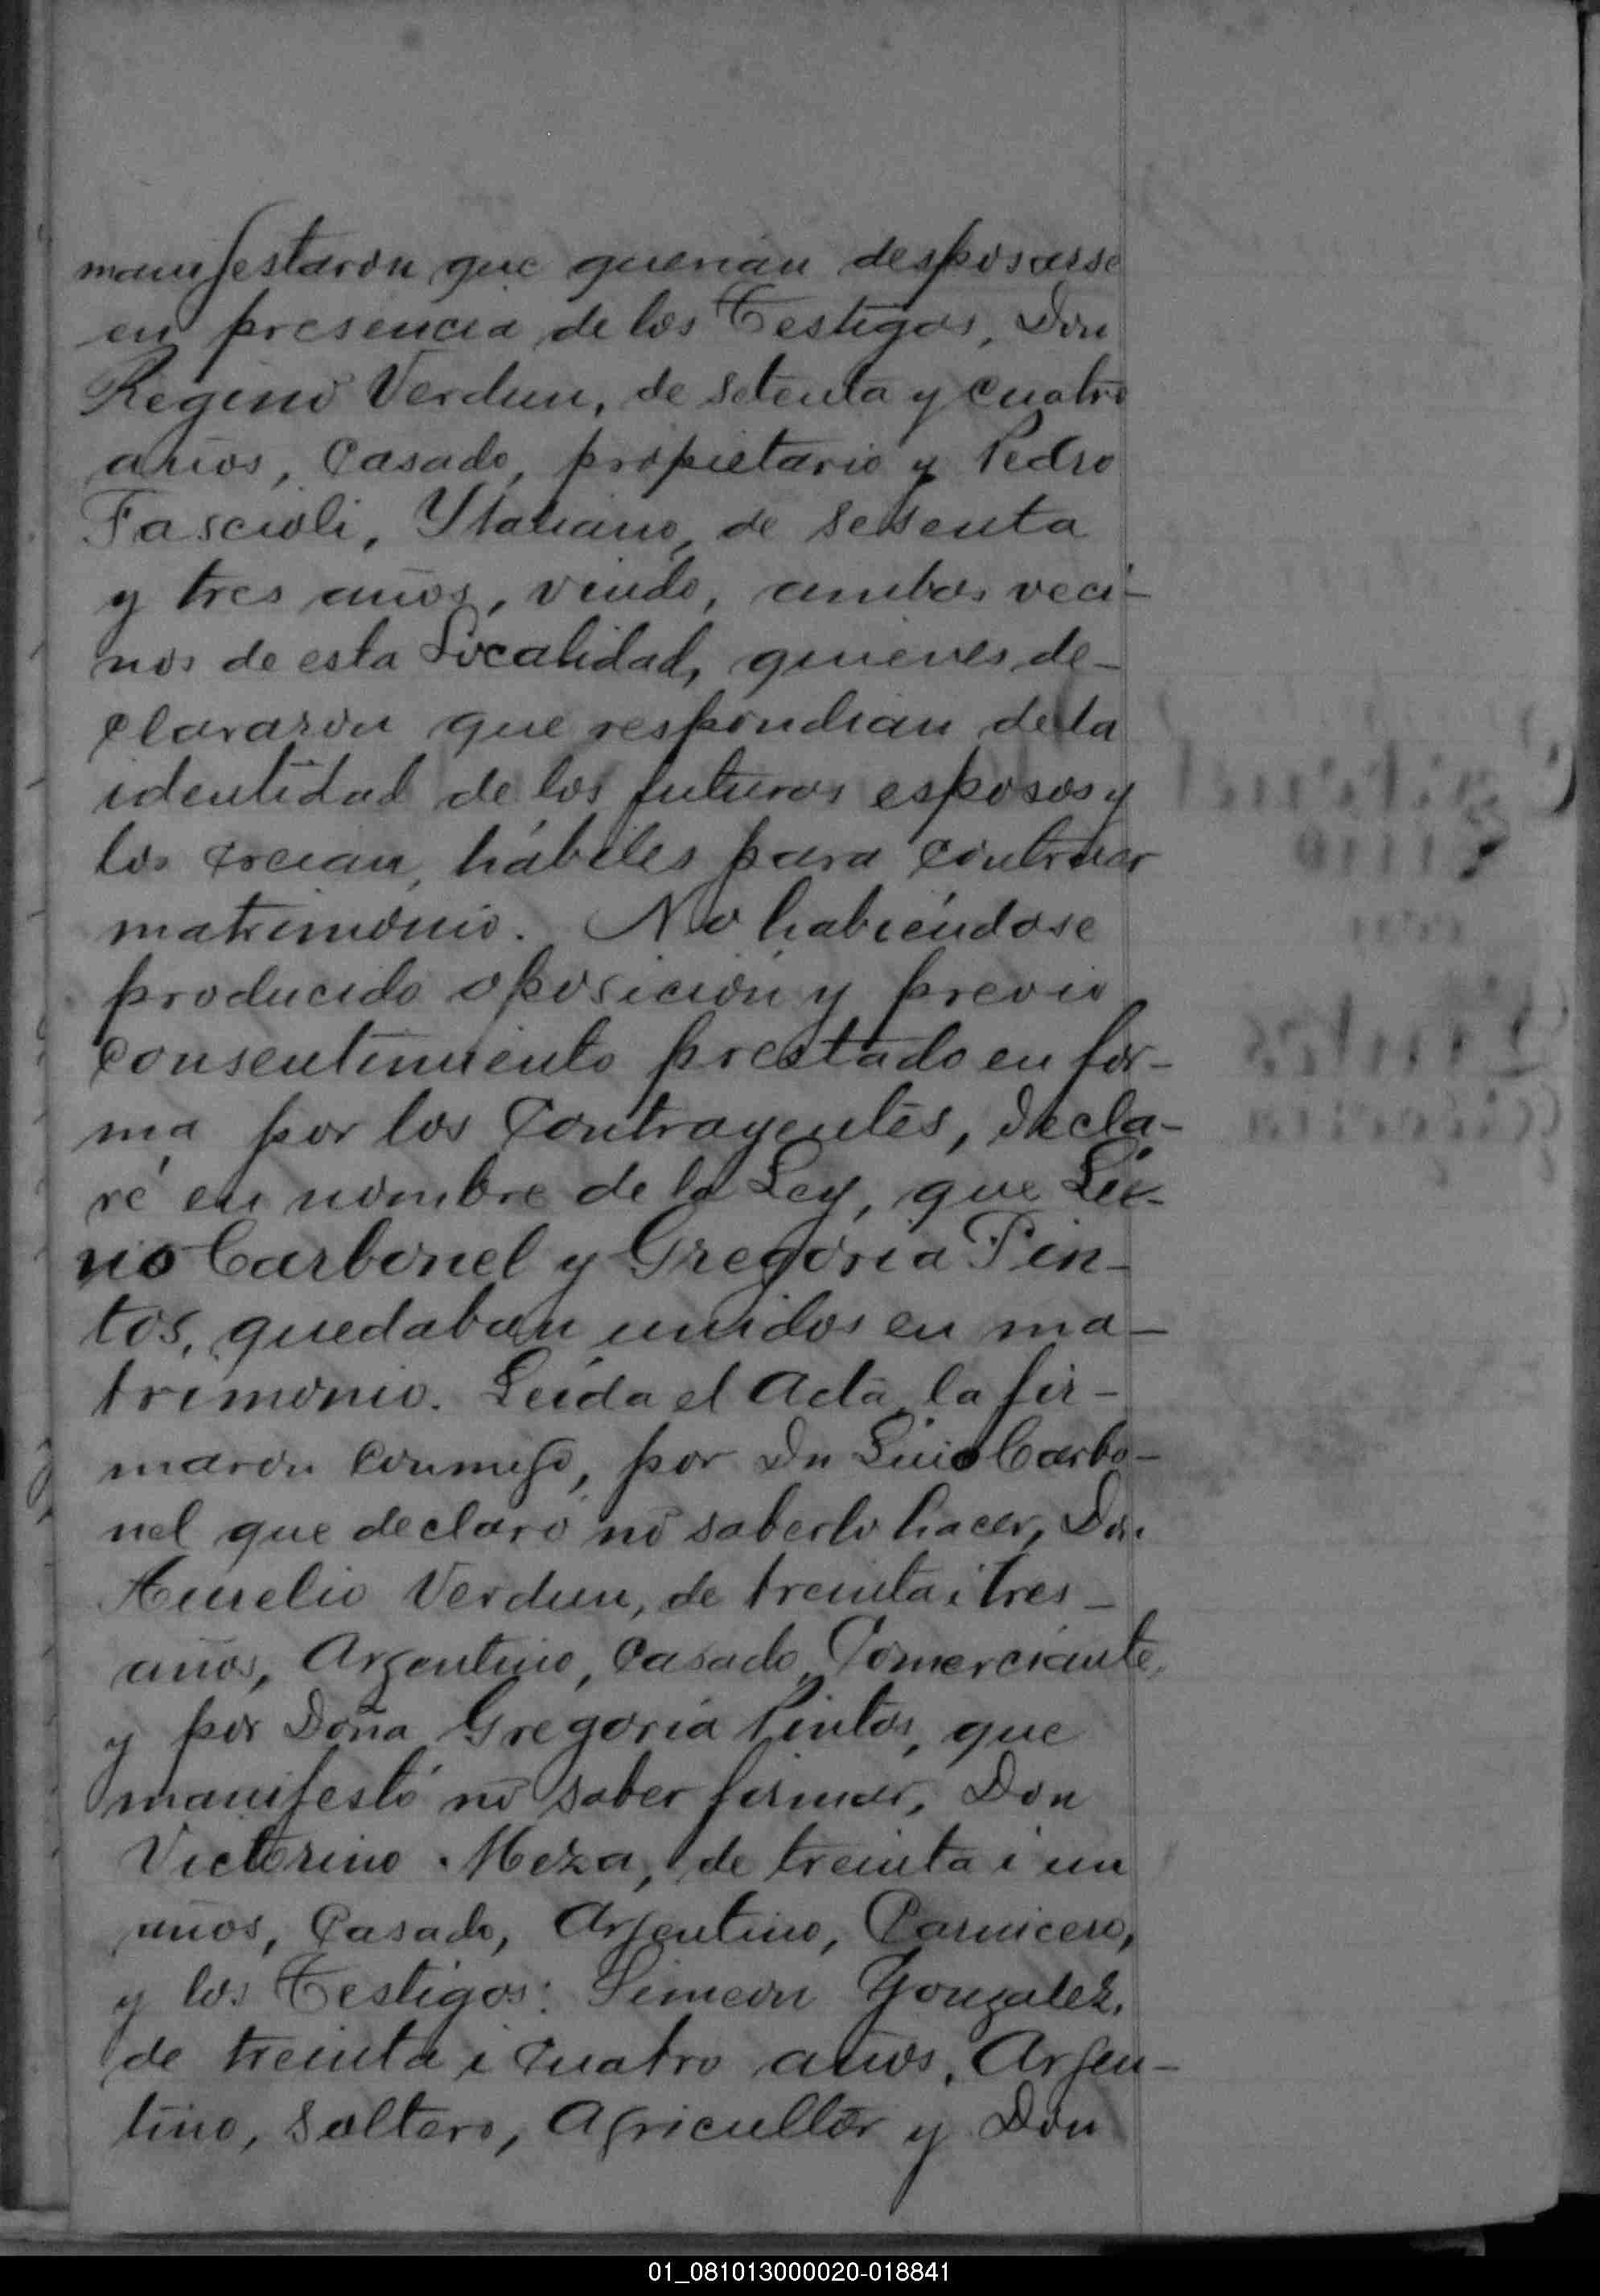 manifestaron que querian desposarse
en presencia de los Testigos, Don
Regino Verdun, de setenta y cuatro
años, Casado, propietario y Pedro
Fascioli, Ytaliano, de sesenta
y tres años, viudo, ambos veci-
nos de esta Localidad, quienes de-
clararon que respondian de la
identidad de los futuros esposos y
los creian, hábiles para contraer
matrimonio. No habiéndose
producido oposición y previo
consentimiento prestado en for-
ma por los Contrayentes, decla-
ré en nombre de la Ley, que Li-
no Carbonel y Gregoria Pin-
tos, quedaban unidos en ma-
trimonio. Leida el Acta, la fir-
maron conmigo, por Dn Lino Carbo-
nel que declaró no saberlo hacer, Don
Aurelio Verdun, de treinta i tres
años, Argentino, Casado, Comerciante,
y por Doña Gregoria Pintos, que
manifestó no saber firmar, Don
Victorino Meza, de treinta i un
años, Casado, Argentino, Carnicero,
y los Testigos: Simeon Gonzalez,
de treinta i cuatro años, Argen-
tino, Soltero, Agricultor y Don
01_081013000020-018841